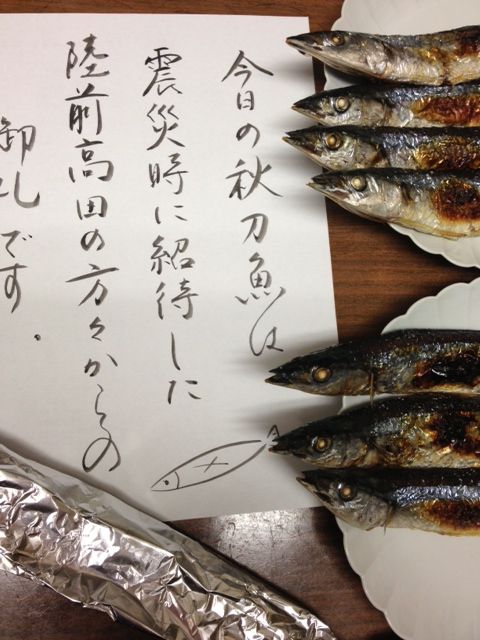 今日の秋刀魚は
震災時に紹待した
陸前高田の方々からの
御礼です.